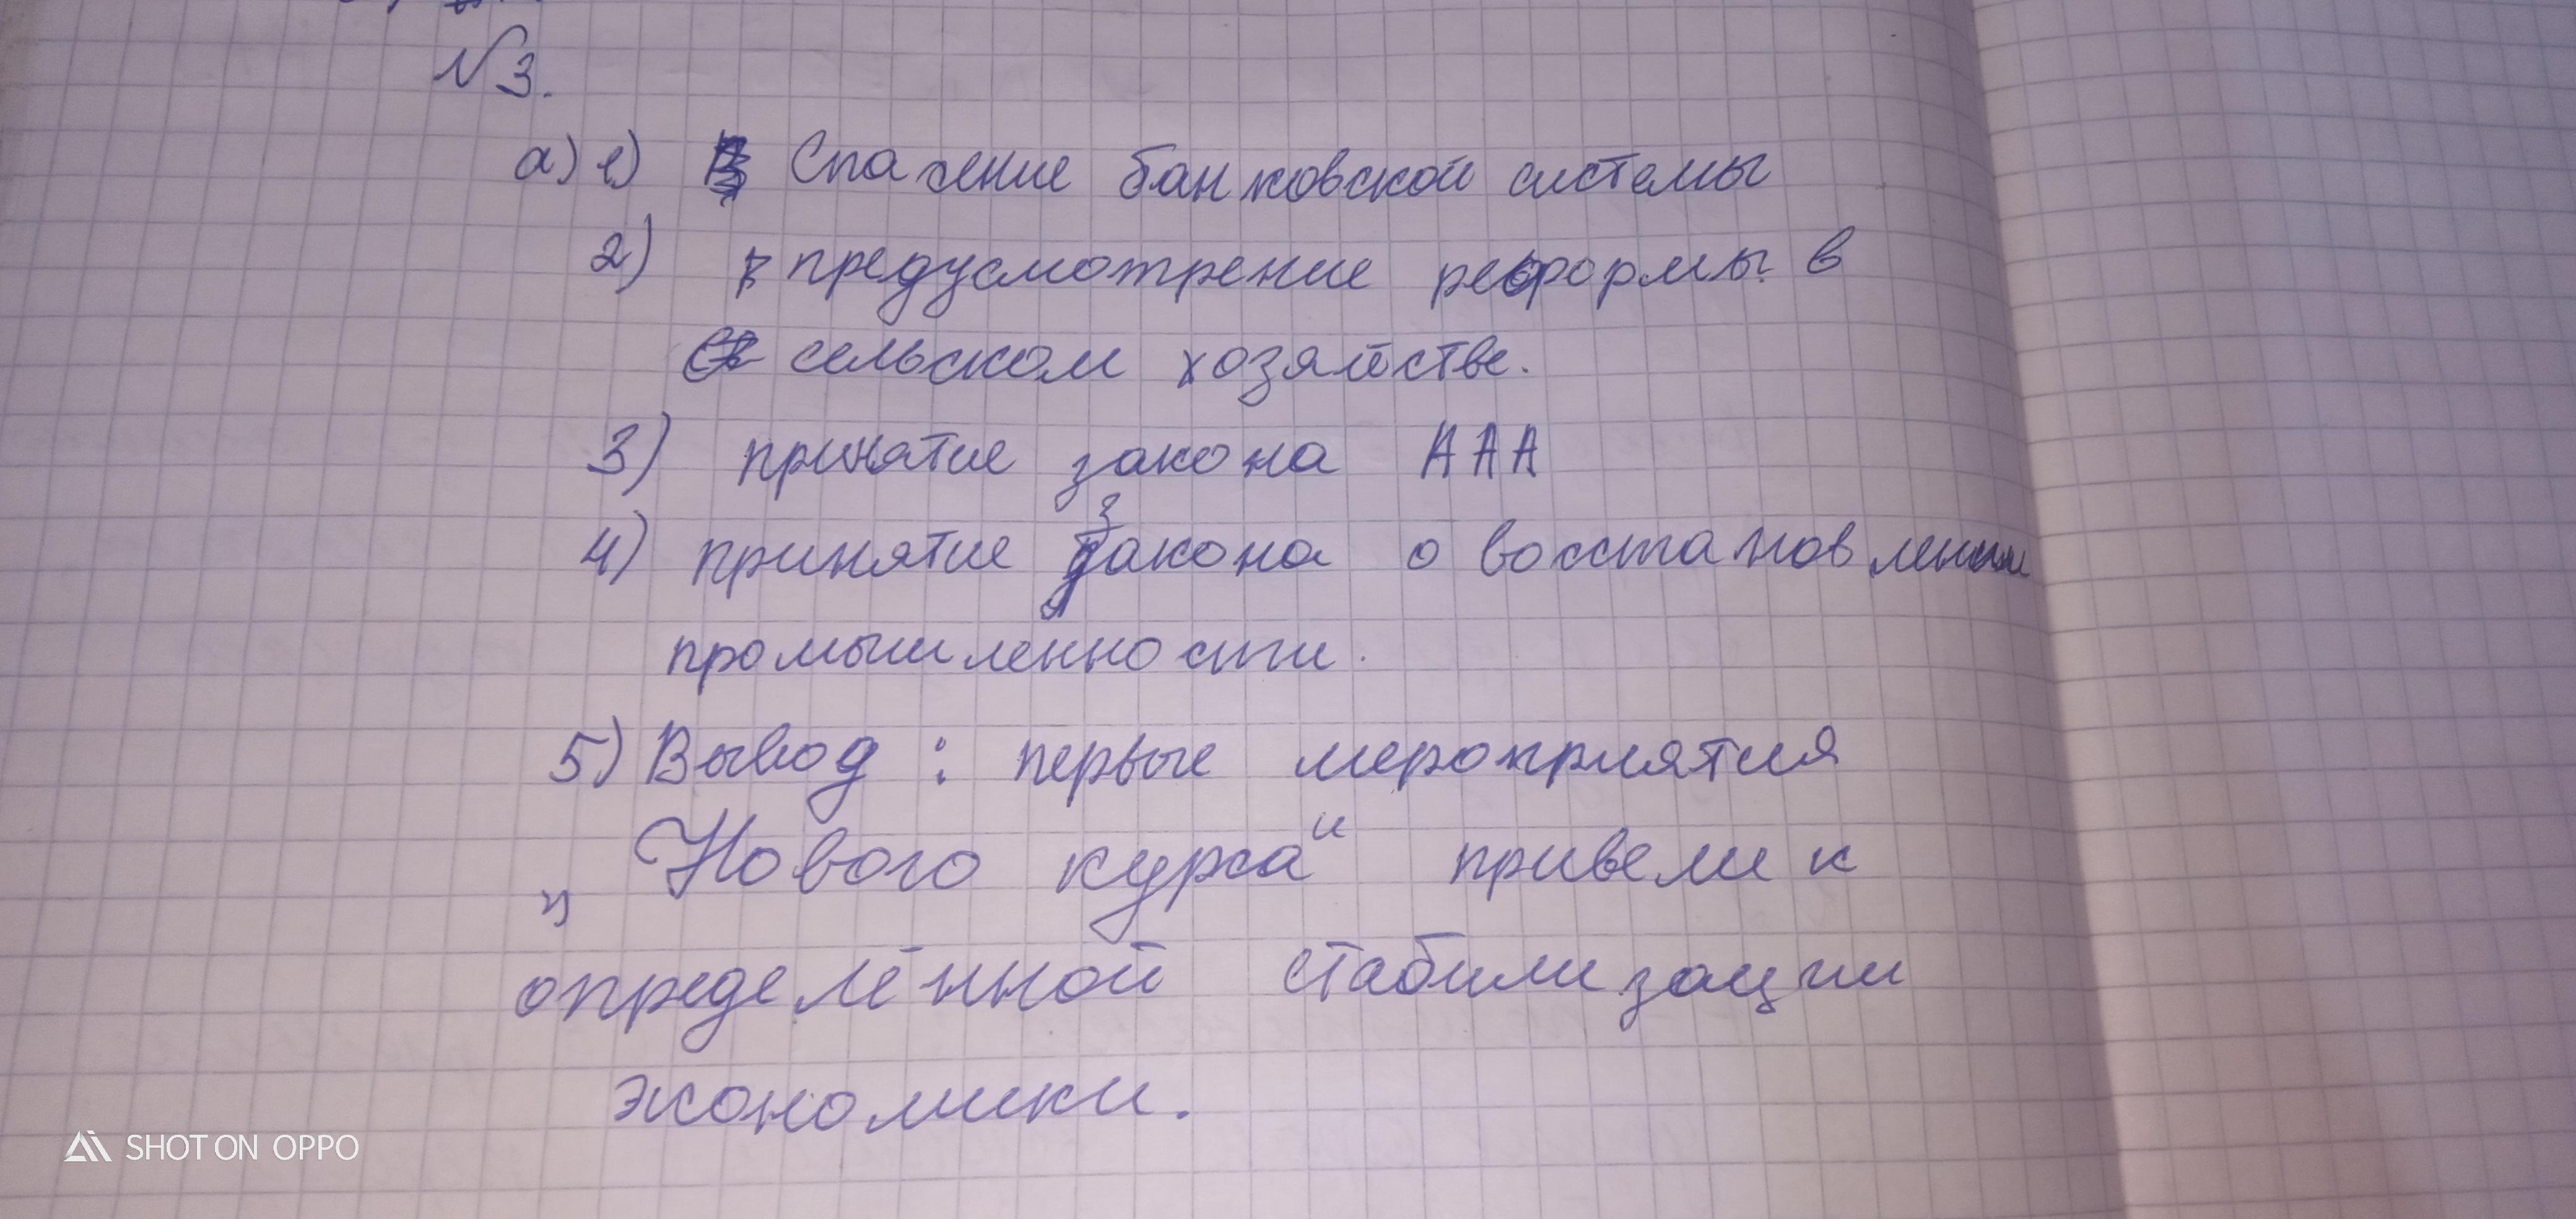 №3.
а) 1) Спасение банковской системы
2) предусмотрение реформы в
сельском хозяйстве.
3) принятие закона ААА
4) принятие закона о восстановлении
промышленности.
5) Вывод : первые мероприятия
„Нового курса“ привели к
определённой стабилизации
экономики.
SHOT ON OPPO